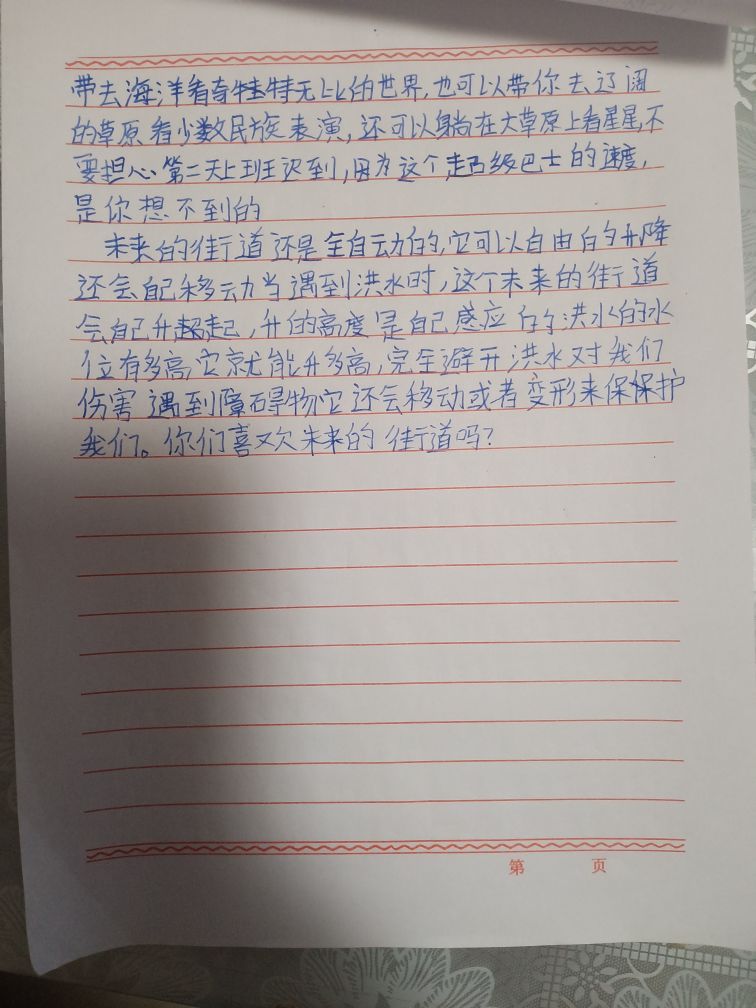 带去海洋看奇怪特无比的世界,也可以带你去辽阔
的草原看少数民族表演,还可以躺在大草原上看星星,不
要担心第二天上班迟到,因为这个超级巴士的速度,
是你想不到的
未来的街道还是全自动的,它可以自由的升降
还会自己移动当遇到洪水时,这个未来的街道
会自己升起,升的高度是自己感应的洪水的水
位有多高,它就能升多高,完全避开洪水对我们
伤害遇到障碍物它还会移动或者变形来保护
我们。你们喜欢未来的街道吗?
第 页